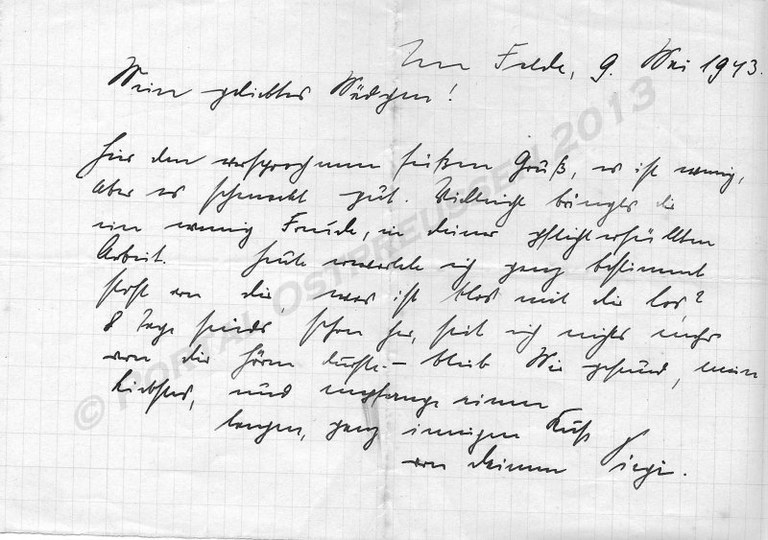 Im Felde, 9. Mai 1943.
Mein geliebtes Mädchen!
Hier den versprochenen süßen Gruß, es ist wenig,
aber es schmeckt gut. Vielleicht bringts dir
ein wenig Freude, in deiner pflichterfüllten
Arbeit. Heute erwartete ich ganz bestimmt
Post von dir, was ist blos mit dir los?
8 Tage sinds schon her, seit ich nichts mehr
von dir hören durfte. – bleib mir gesund, mein
Liebstes, und empfange einen
langen, ganz innigen Kuß
von deinem
© PORTAL OSTPREUSSEN 2013